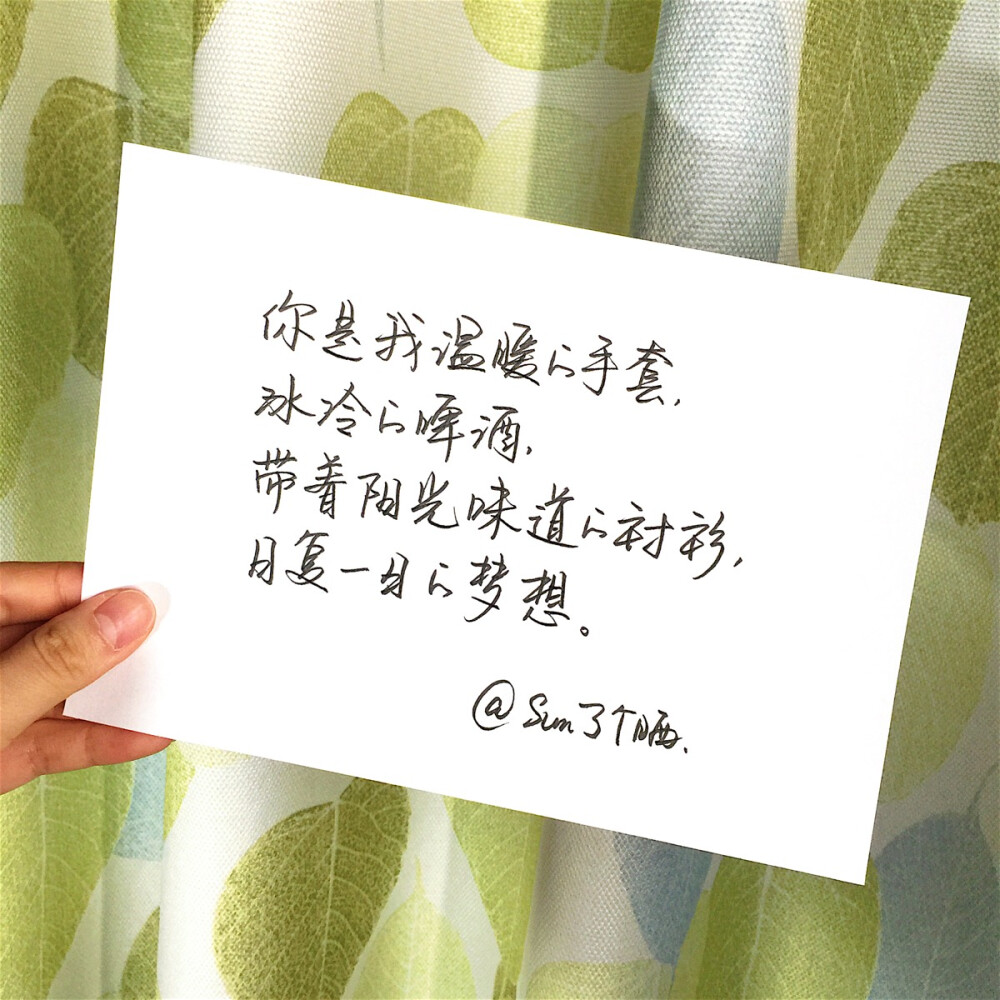 你是我温暖的手套,
冰冷的啤酒,
带着阳光味道的衬衫,
日复一日的梦想。
@Sun了个晒.